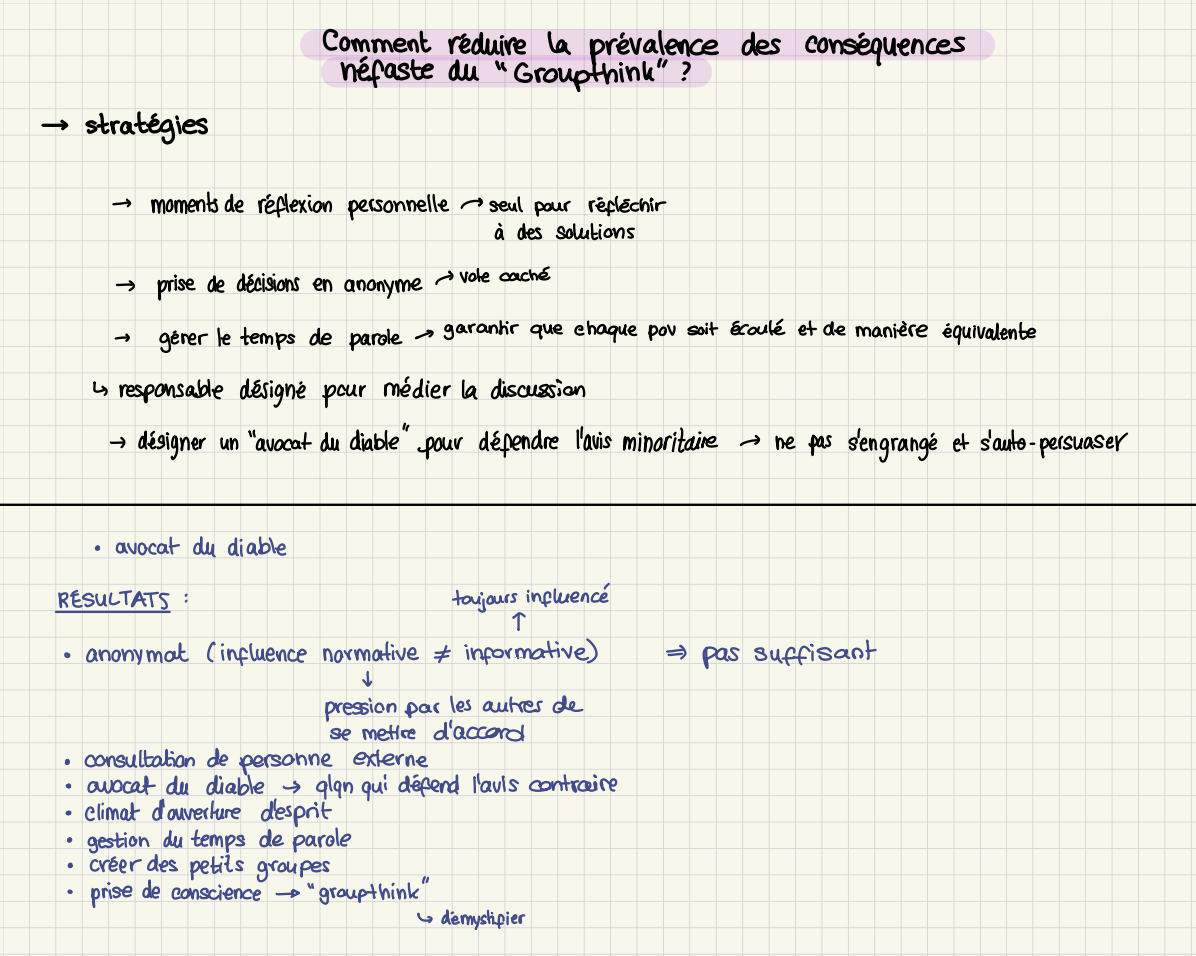 Comment réduire la prévalence des conséquences
néfaste du "Groupthink" ?
→ stratégies
→ moments de réflexion personnelle → seul pour réfléchir
à des solutions
→ prise de décisions en anonyme → vote caché
→ gérer le temps de parole → garantir que chaque pov soit écouté et de manière équivalente
↳ responsable désigné pour médier la discussion
→ désigner un "avocat du diable" pour défendre l'avis minoritaire → ne pas s'engrangé et s'auto-persuaser
• avocat du diable
RÉSULTATS :
toujours influencé
↑
• anonymat (influence normative ≠ informative) ⇒ pas suffisant
↓
pression par les autres de
se mettre d'accord
• consultation de personne externe
• avocat du diable → qlqn qui défend l'avis contraire
• climat d'ouverture d'esprit
• gestion du temps de parole
• créer des petits groupes
• prise de conscience → "groupthink"
↳ démystifier